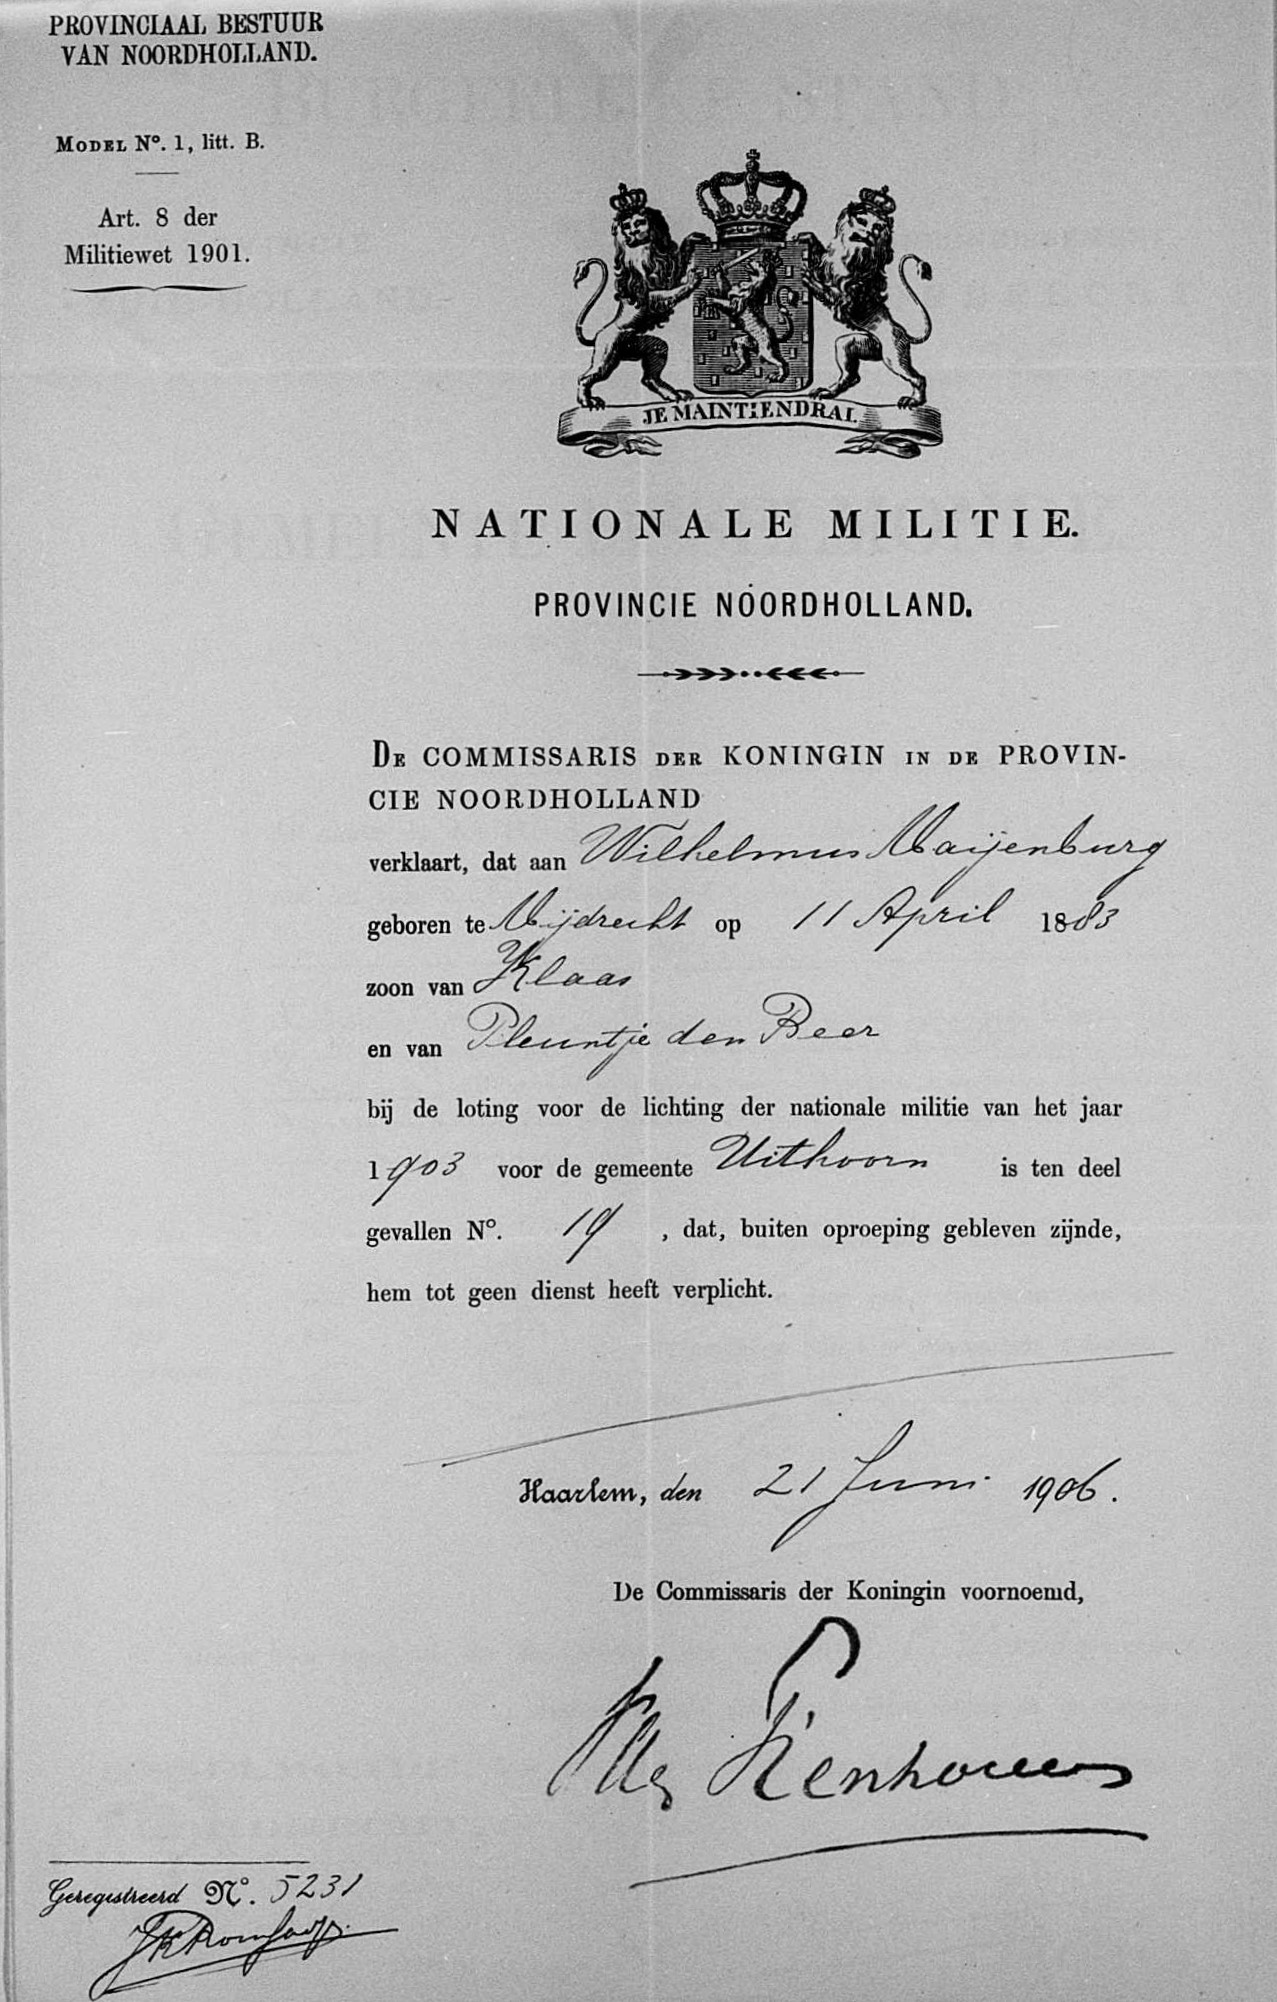 PROVINCIAAL BESTUUR
VAN NOORDHOLLAND.
MODEL No. 1, litt. B.
Art. 8 der
Militiewet 1901.
JE MAINTIENDRAI.
NATIONALE MILITIE.
PROVINCIE NOORDHOLLAND.
DE COMMISSARIS DER KONINGIN IN DE PROVIN-
CIE NOORDHOLLAND
verklaart, dat aan Wilhelmus Maijenburg
geboren te Mijdrecht op 11 April 1883
zoon van Klaas
en van Pleuntje den Beer
bij de loting voor de lichting der nationale militie van het jaar
1903 voor de gemeente Uithoorn is ten deel
gevallen No. 19, dat, buiten oproeping gebleven zijnde,
hem tot geen dienst heeft verplicht.
Haarlem, den 21 Juni 1906.
De Commissaris der Koningin voornoemd,
Tienhoven
Geregistreerd No. 5231